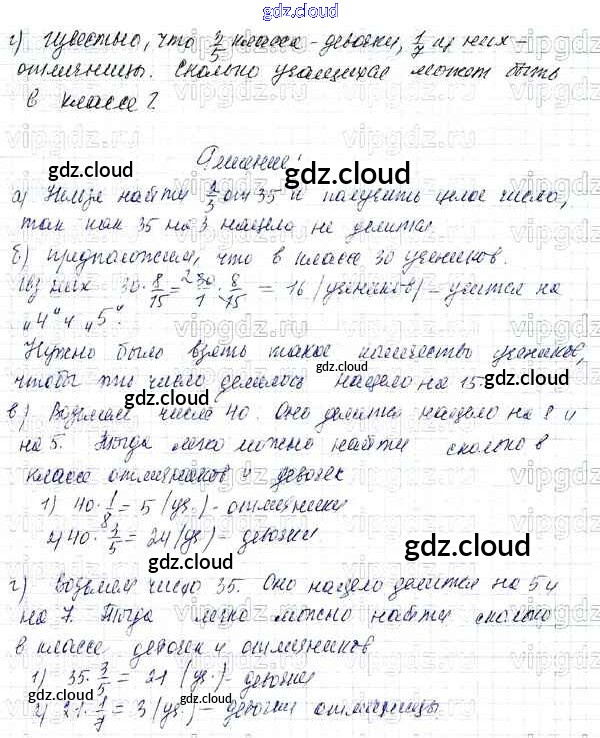 gdz.cloud
г) Известно, что 3/5 класса - девочки, 1/7 из них -
отличницы. Сколько учащихся может быть
в классе?
Решение:
gdz.cloud gdz.cloud gdz.cloud
а) Нельзя найти 2/3 от 35 и получить целое число,
так как 35 на 3 нацело не делится.
б) предположим, что в классе 30 учеников.
Из них 30 · 8/15 = 30/1 · 8/15 = 16 (учеников) - учится на
"4" и "5".
gdz.cloud
Нужно было взять такое количество учеников,
чтобы это число делилось нацело на 15.
gdz.cloud
в) Возьмем число 40. Оно делится нацело на 8 и
на 5. Тогда легко можно найти сколько в
gdz.cloud
классе отличников и девочек
1) 40 · 1/8 = 5 (уч.) - отличники
2) 40 · 3/5 = 24 (уч.) - девочки
gdz.cloud
г) Возьмем число 35. Оно нацело делится на 5 и
на 7. Тогда легко можно найти сколько
в классе девочек и отличников
1) 35 · 3/5 = 21 (уч.) - девочки
gdz.cloud
2) 21 · 1/7 = 3 (уч.) - девочки отличницы
gdz.cloud